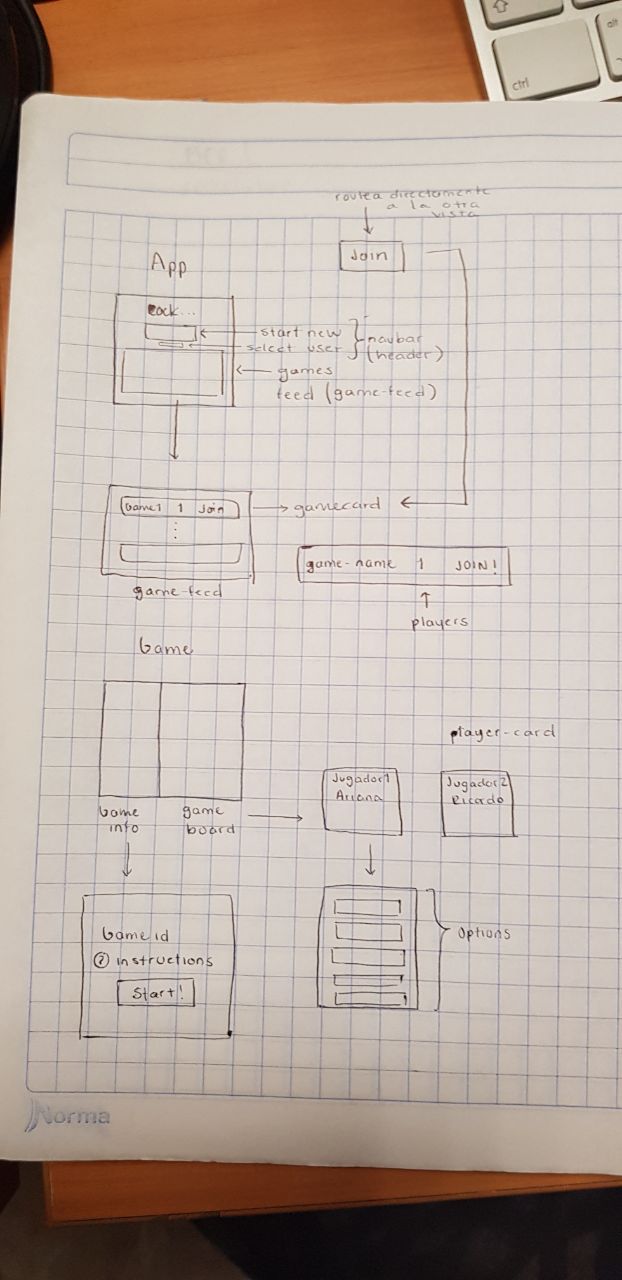 ctrl
alt
routea directamente
a la otra
vista
Join
App
Rock...
start new
select user
navbar
(header)
games
feed (game-feed)
Game1 1 Join
gamecard
game-feed
game-name 1 JOIN!
players
Game
player-card
Jugador1
Ariana
Jugador2
Ricardo
Game
info
game
board
Game id
? instructions
Start!
Options
Norma